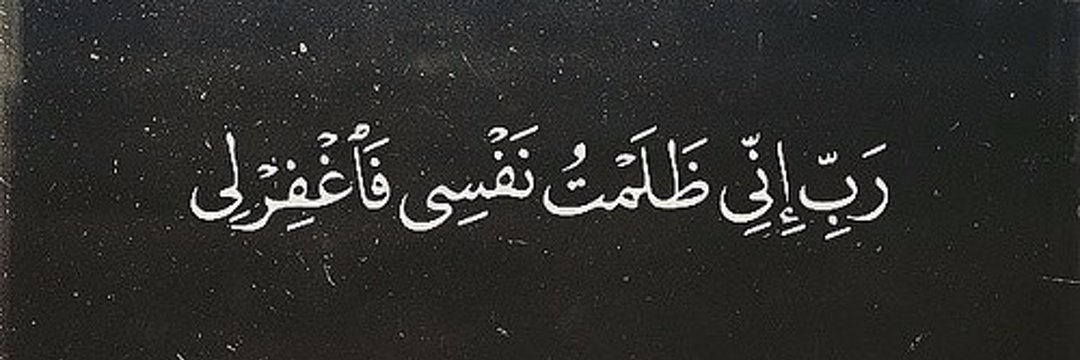 رَبِّ إِنِّى ظَلَمْتُ نَفْسِى فَٱغْفِرْ لِى